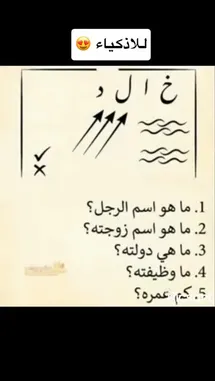 للاذكياء 😍
خ ا ل د
1. ما هو اسم الرجل؟
2. ما هو اسم زوجته؟
3. ما هي دولته؟
4. ما وظيفته؟
5. كم عمره؟